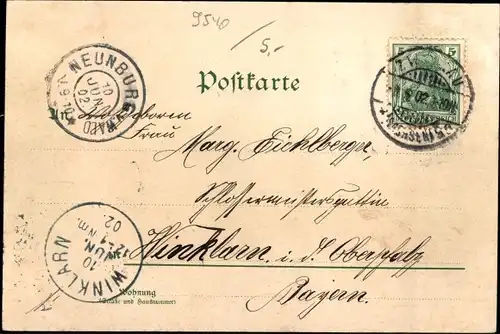 9540
5,-
5
Postkarte
NEUNBURG v. WALD
10
JUN
02
An
Frau
Marg. Eichlberger
Schlossermeistersgattin
Winklarn i. d. Oberpfalz
Bayern.
WINKLARN
10
JUN.
02
12-1
Nm.
Wohnung
(Straße und Hausnummer)